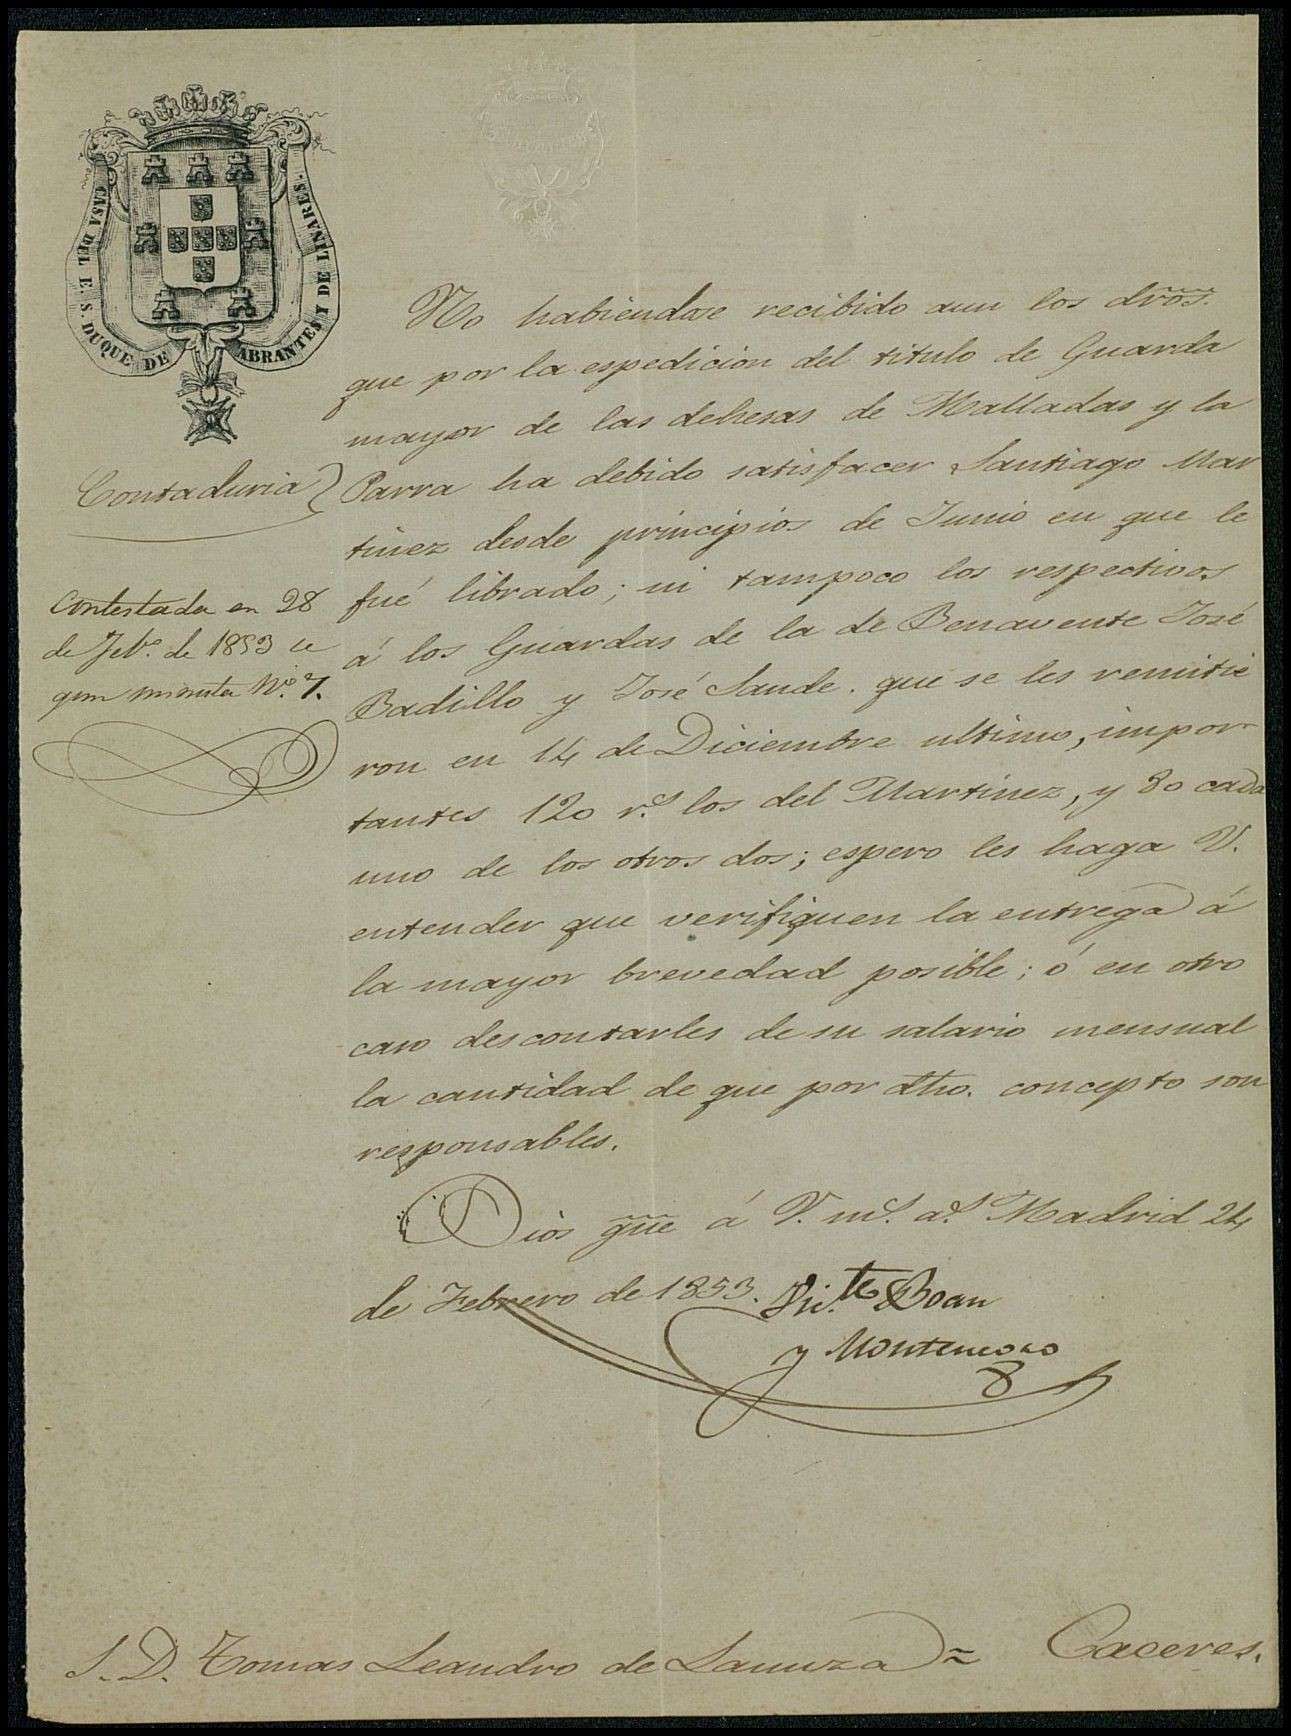 CASA DEL E. S. DUQUE DE ABRANTES Y DE LINARES.
Contaduria
Contestada en 28
de Feb.o de 1853 se
gun minuta N.o 7.
No habiendose recibido aun los dros.
que por la espedicion del titulo de Guarda
mayor de las dehesas de Malladas y la
Parra ha debido satisfacer Santiago Mar
tinez desde principios de Junio en que le
fué librado; ni tampoco los respectivos
á los Guardas de la de Benavente José
Badillo y José Sande. que se les remitie
ron en 14 de Diciembre ultimo, impor
tantes 120 r.s los del Martinez, y 80 cada
uno de los otros dos; espero les haga V.
entender que verifiquen la entrega á
la mayor brevedad posible; ó en otro
caso descontarles de su salario mensual
la cantidad de que por dho. concepto son
responsables.
Dios gue á V. m.s a.s Madrid 24
de Febrero de 1853. Vic.te Boan
y Montenegro
S. D. Tomas Leandro de Lanuza = Caceres.